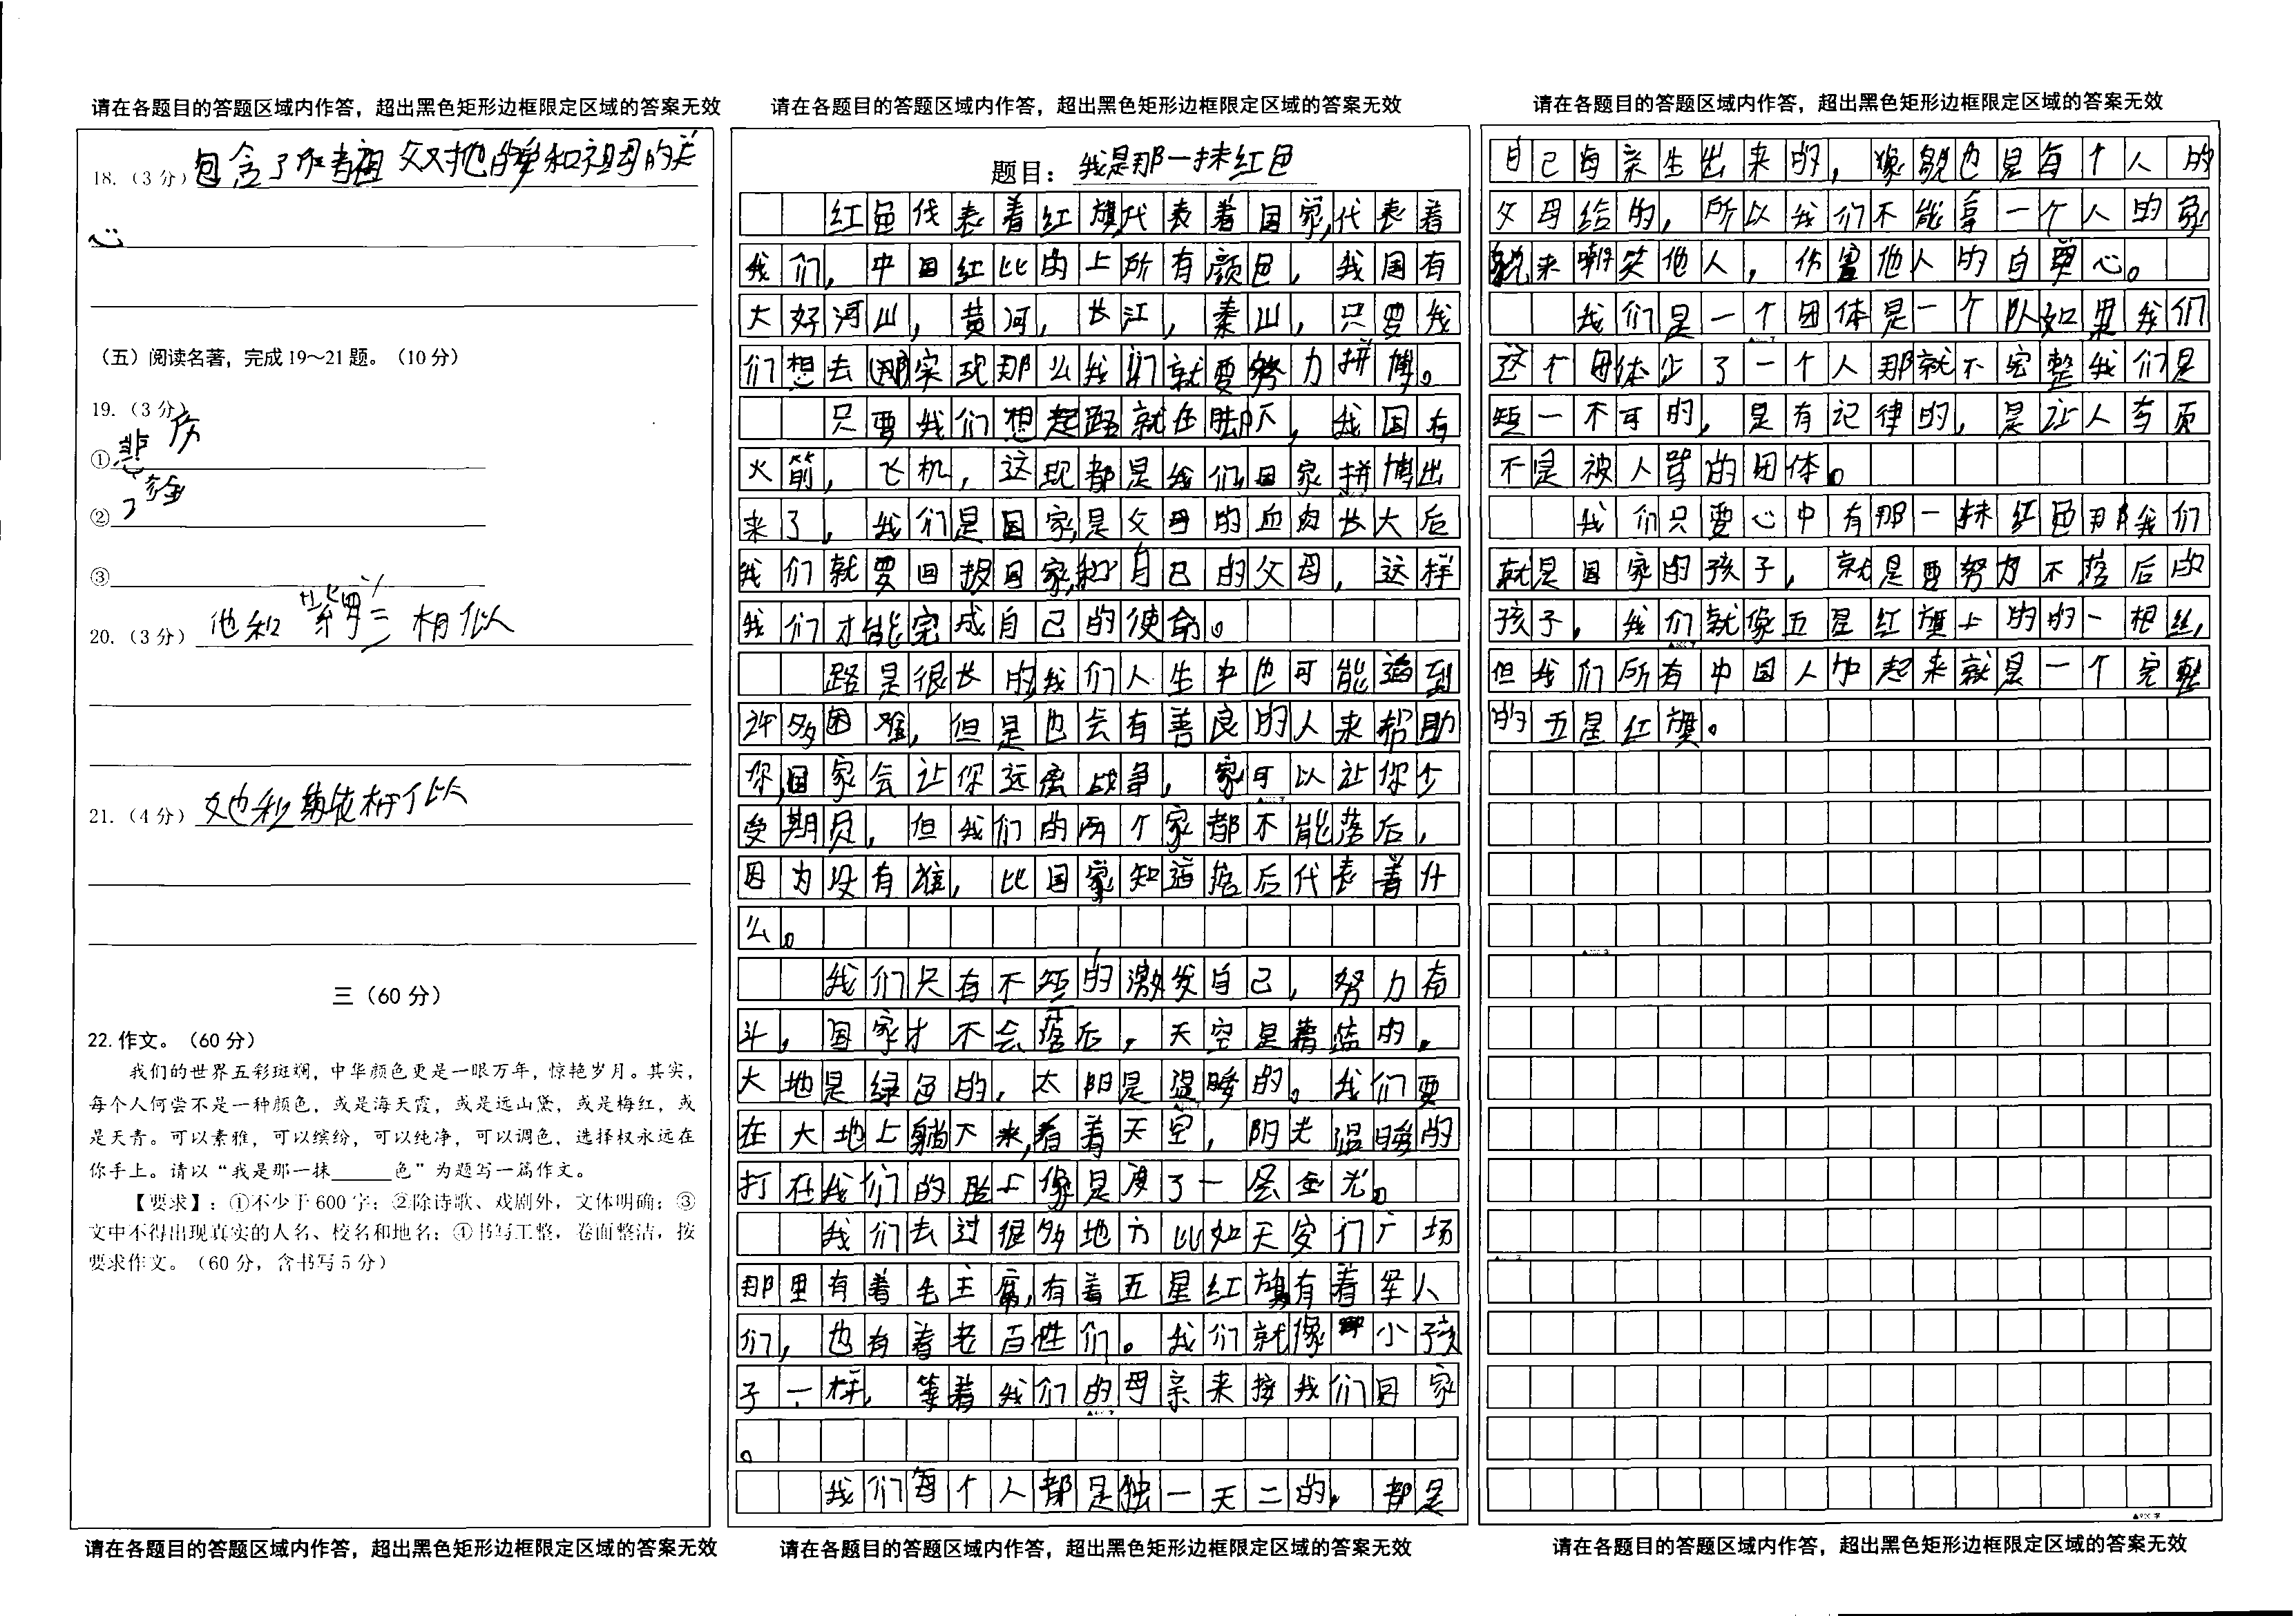 请在各题目的答题区域内作答，超出黑色矩形边框限定区域的答案无效
18.（3 分）包含了 祖父对她的 和祖母的关
心
（五）阅读名著，完成19～21 题。（10 分）
19.（3 分）
①悲伤
②
③
20.（3 分）他和 相似
21.（4 分）她和 相似
三（60 分）
22.作文。（60 分）
我们的世界五彩斑斓，中华颜色更是一眼万年，惊艳岁月。其实，
每个人何尝不是一种颜色，或是海天霞，或是远山黛，或是梅红，或
是天青。可以素雅，可以缤纷，可以纯净，可以调色，选择权永远在
你手上。请以“我是那一抹______色”为题写一篇作文。
【要求】：①不少于 600 字；②除诗歌、戏剧外，文体明确；③
文中不得出现真实的人名、校名和地名；④书写工整，卷面整洁，按
要求作文。（60 分，含书写 5 分）
请在各题目的答题区域内作答，超出黑色矩形边框限定区域的答案无效
请在各题目的答题区域内作答，超出黑色矩形边框限定区域的答案无效
题目：我是那一抹红色
红色代表着红旗,代表着国家,代表着
我们，中国红比的上所有颜色，我国有
大好河山，黄河，长江，泰山，只要我
们想去 实现那么我们就要努力拼博。
只要我们想起路就在脚下，我国有
火箭，飞机，这现都是我们国家拼博出
来了，我们是国家,是父母的血肉长大后
我们就要回报国家,和自己的父母，这样
我们才能完成自己的使命。
路是很长的我们人生中也可能遇到
许多困难，但是也会有善良的人来帮助
你,国家会让你远离战争，家可以让你少
受期负，但我们的两个家都不能落后，
因为没有谁，比国家知道落后代表着什
么。
我们只有不短的激发自己，努力奋
斗，国家才不会落后，天空是着蓝的，
大地是绿色的，太阳是温暖的。我们要
在大地上躺下来,看着天空，阳光温暖的
打在我们的脸上像是度了一层金光。
我们去过很多地方比如天安门广场
那里有着毛主席,有着五星红旗有着军人
们，也有着老百姓们。我们就像 小孩
子一样，等着我们的母亲来接我们回家
。
我们每个人都是独一天二的，都是
请在各题目的答题区域内作答，超出黑色矩形边框限定区域的答案无效
请在各题目的答题区域内作答，超出黑色矩形边框限定区域的答案无效
自己母亲生出来的，像貌也是每个人的
父母给的，所以我们不能拿一个人的象
貌来嘲笑他人，伤害他人的自尊心。
我们是一个团体是一个队如果我们
这个团体少了一个人那就不完整我们是
短一不可的，是有记律的，是让人夸页
不是被人骂的团体。
我们只要心中有那一抹红色那我们
就是国家的孩子，就是要努力不落后的
孩子，我们就像五星红旗上的的一根丝，
但我们所有中国人加起来就是一个完整
的五星红旗。
请在各题目的答题区域内作答，超出黑色矩形边框限定区域的答案无效